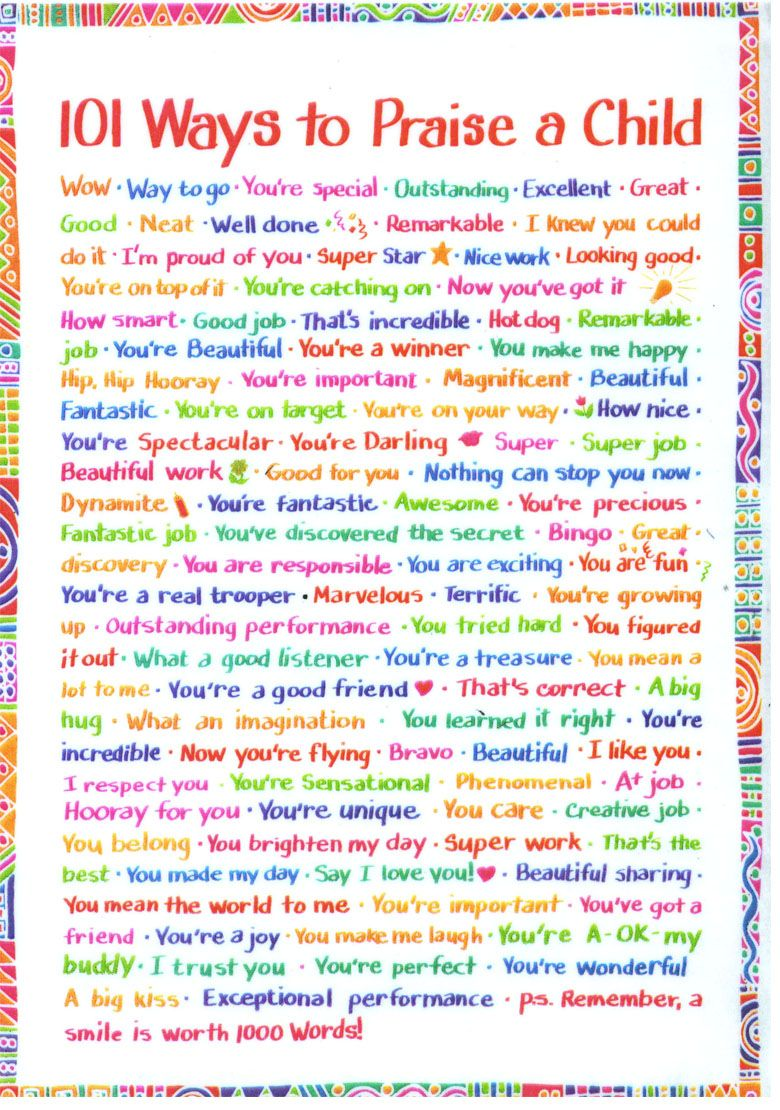 101 Ways to Praise a Child
Wow · Way to go · You're special · Outstanding · Excellent · Great ·
Good · Neat · Well done · Remarkable · I knew you could
do it · I'm proud of you · Super Star · Nice work · Looking good ·
You're on top of it · You're catching on · Now you've got it
How smart · Good job · That's incredible · Hot dog · Remarkable ·
job · You're Beautiful · You're a winner · You make me happy ·
Hip, Hip Hooray · You're important · Magnificent · Beautiful ·
Fantastic · You're on target · You're on your way · How nice ·
You're Spectacular · You're Darling Super · Super job ·
Beautiful work · Good for you · Nothing can stop you now ·
Dynamite · You're fantastic · Awesome · You're precious ·
Fantastic job · You've discovered the secret · Bingo · Great ·
discovery · You are responsible · You are exciting · You are fun ·
You're a real trooper · Marvelous · Terrific · You're growing
up · Outstanding performance · You tried hard · You figured
it out · What a good listener · You're a treasure · You mean a
lot to me · You're a good friend · That's correct · A big
hug · What an imagination · You learned it right · You're
incredible · Now you're flying · Bravo · Beautiful · I like you ·
I respect you · You're Sensational · Phenomenal · At job ·
Hooray for you · You're unique · You care · Creative job ·
You belong · You brighten my day · Super work · That's the
best · You made my day · Say I love you! · Beautiful sharing ·
You mean the world to me · You're important · You've got a
friend · You're a joy · You make me laugh · You're A-OK-my
buddy · I trust you · You're perfect · You're wonderful
A big kiss · Exceptional performance · p.s. Remember, a
smile is worth 1000 Words!